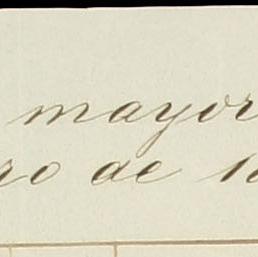 mayor
ro de 18